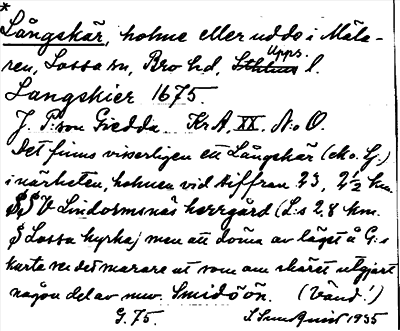 *
Långskär, holme eller udde i Mäla-
ren, Lossa sn, Bro hd, Upps. l.
Langskier 1675.
J. P:son Giedda KrA XX. N:o O.
Det finns visserligen ett Långskär (ek. o. Lj.)
i närheten, holmen vid siffran 23, 2½ km
V Lindormsnäs herrgård (L:s 2,8 km.
S Lossa kyrka) men att döma av läget å G:s
karta ser det snarare ut som om skäret utgjort
någon del av nuv. Smidöön. (Vänd!)
G. 75. S Sundquist 1935